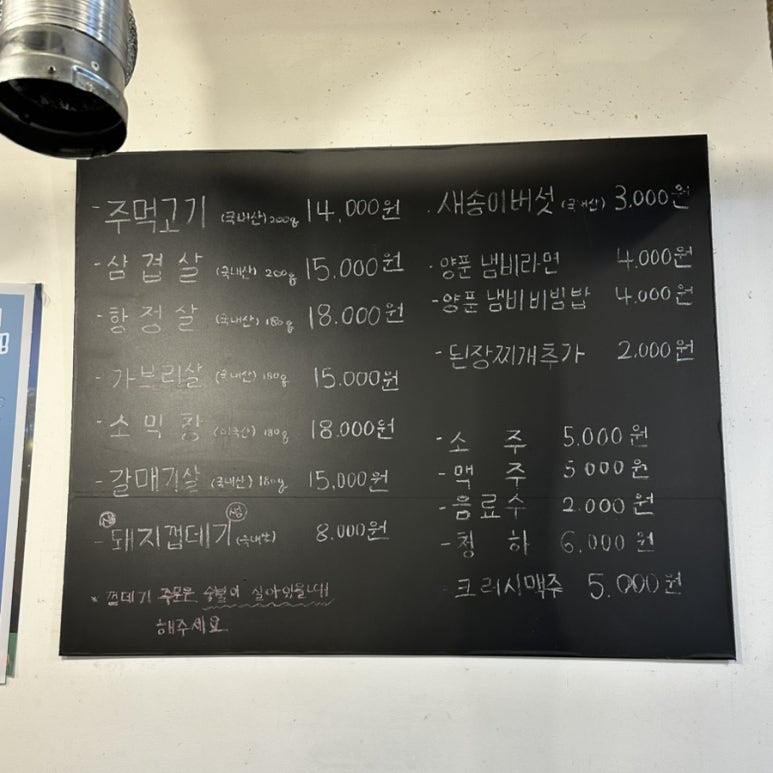 - 주먹고기 (국내산) 200g 14,000원
- 삼겹살 (국내산) 200g 15.000원
- 항정살 (국내산) 180g 18.000원
- 가브리살 (국내산) 180g 15.000원
- 소막창 (미국산) 180g 18.000원
- 갈매기살 (국내산) 180g 15,000원
- 돼지껍데기 (국내산) 8.000원
* 껍데기 주문은 숯불이 살아있을때
해주세요
. 새송이버섯 (국내산) 3.000원
. 양푼 냄비라면 4.000원
- 양푼 냄비 비빔밥 4.000원
- 된장찌개추가 2.000원
- 소주 5.000원
- 맥주 5000원
- 음료수 2.000원
- 청하 6,000원
크러시맥주 5.000원